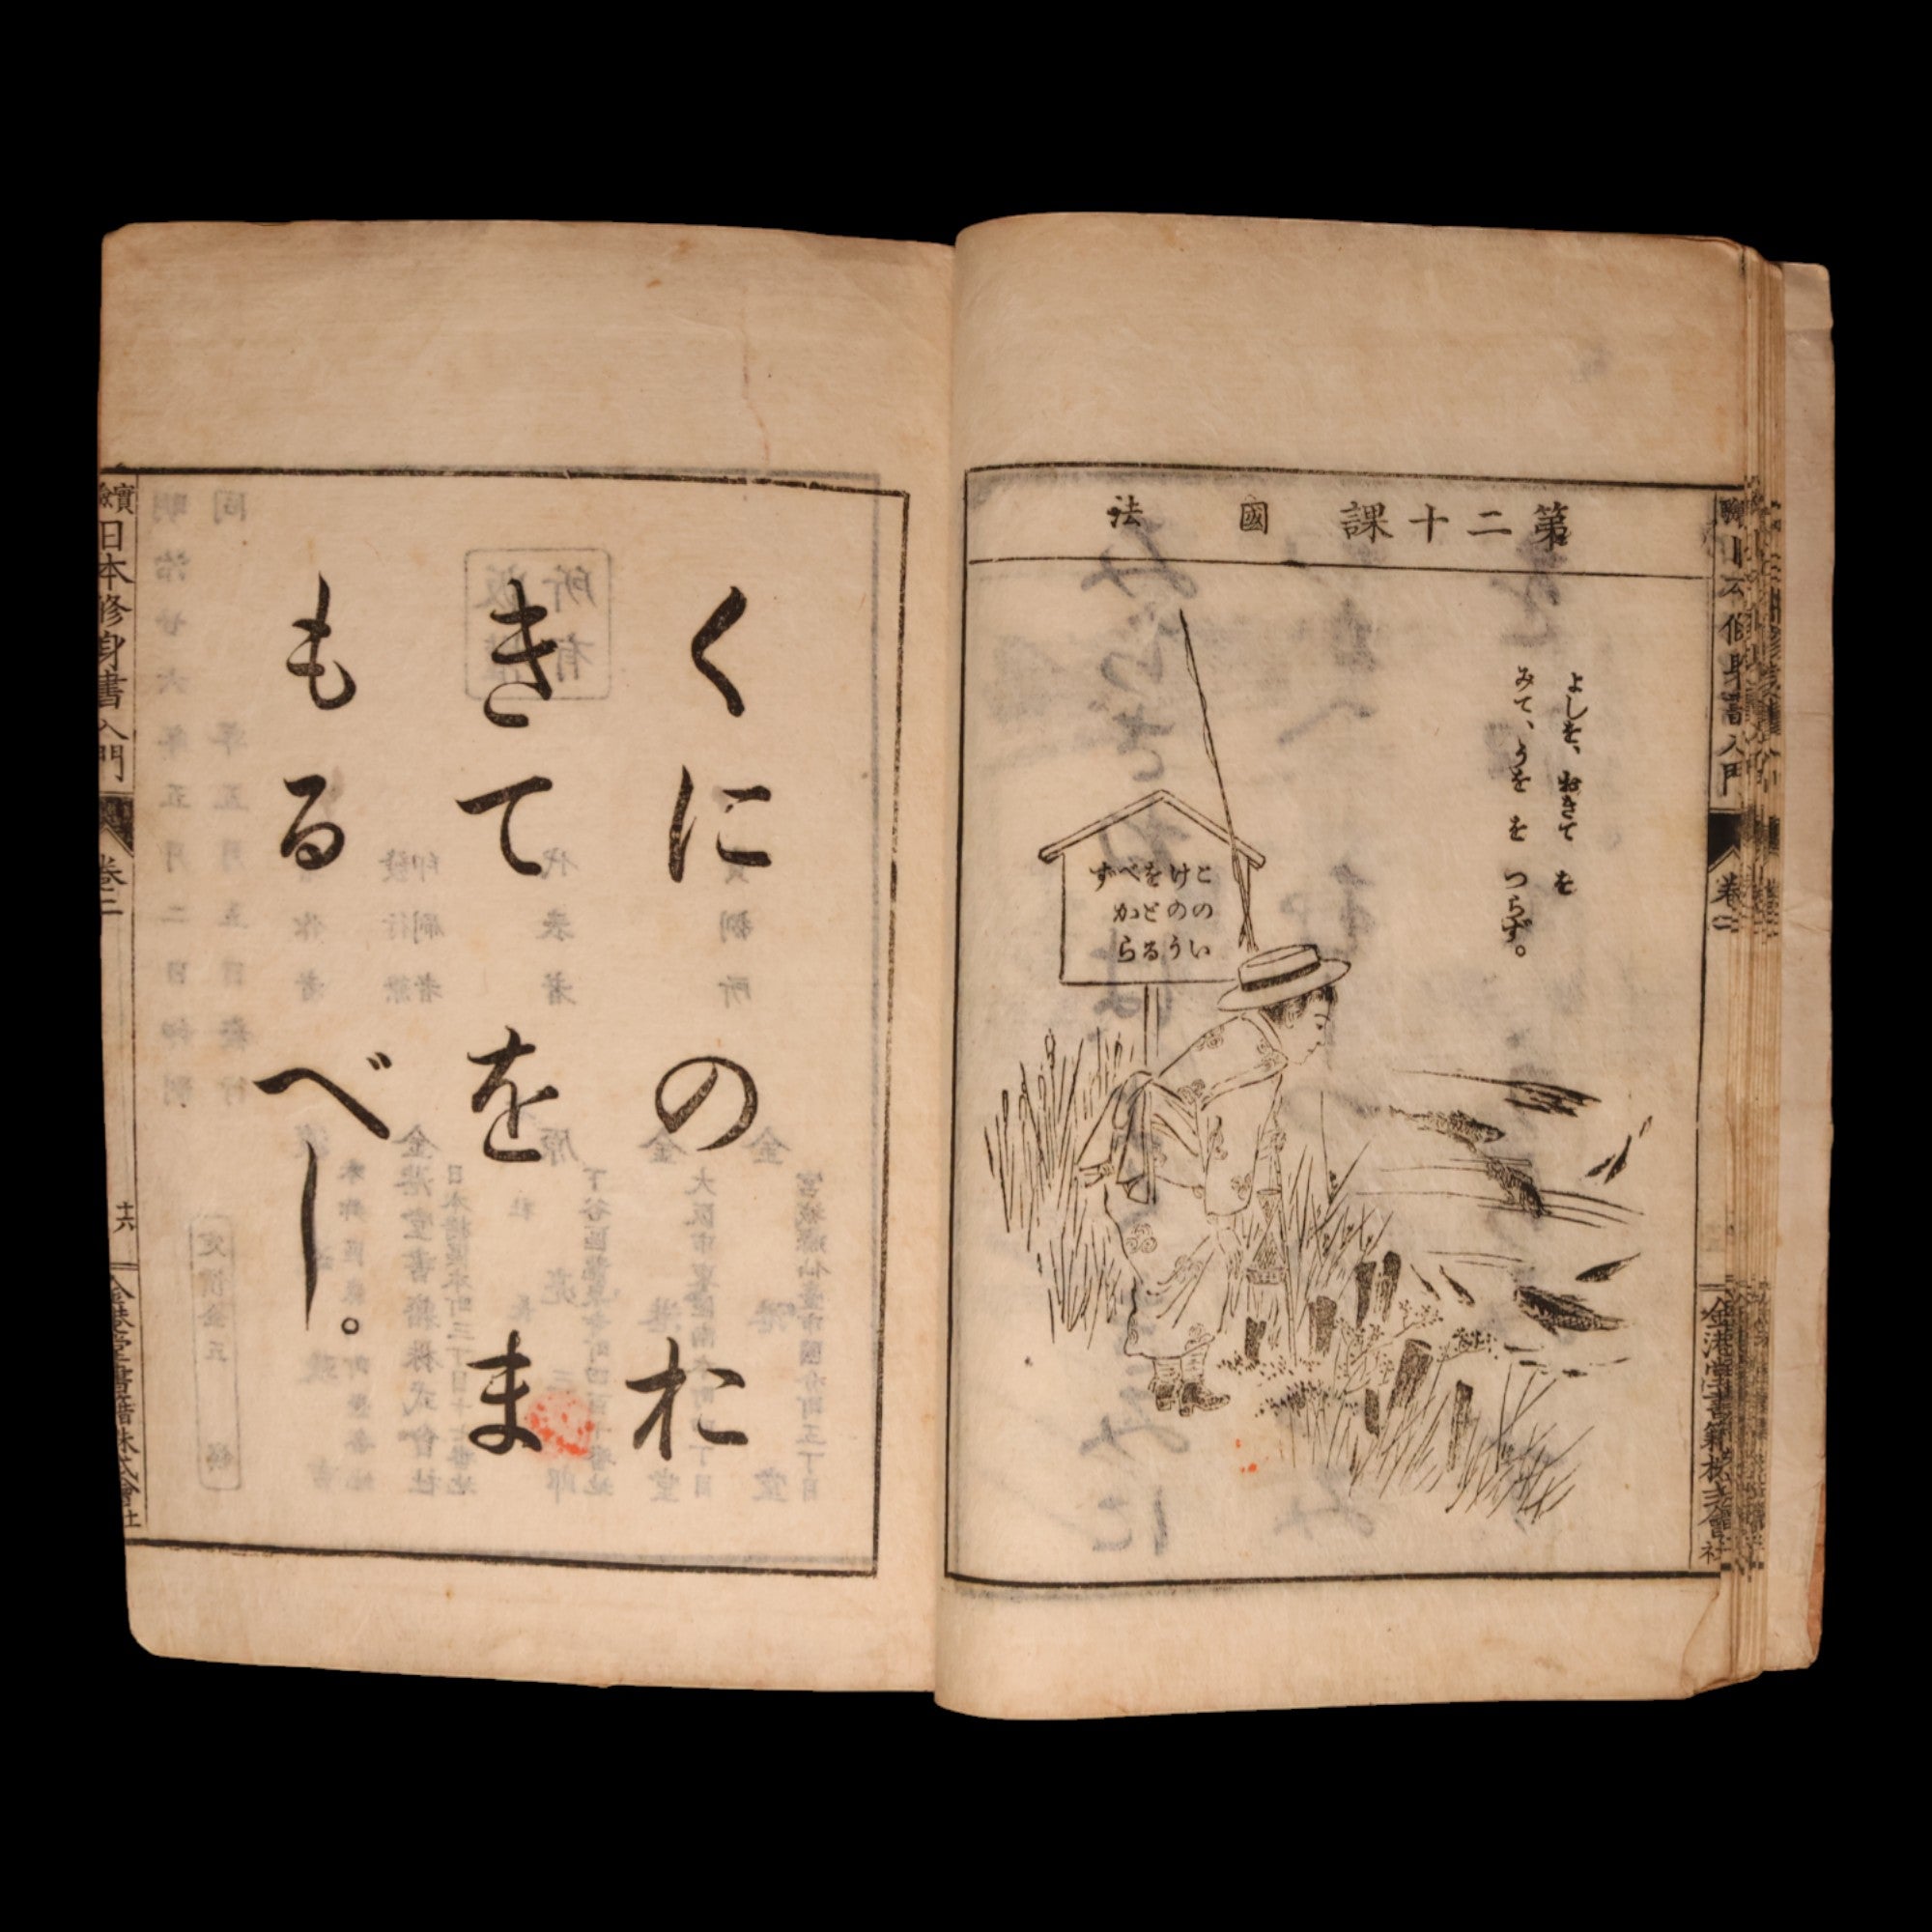 第二十課 國法
よしを、おきて を
みて、うを を つらず。
このい
けのう
をとる
べから
ず
卷二
金港堂書籍株式會社
くにのお
きてをま
もるべし。
實驗日本修身書入門
卷二
十六
金港堂書籍株式會社